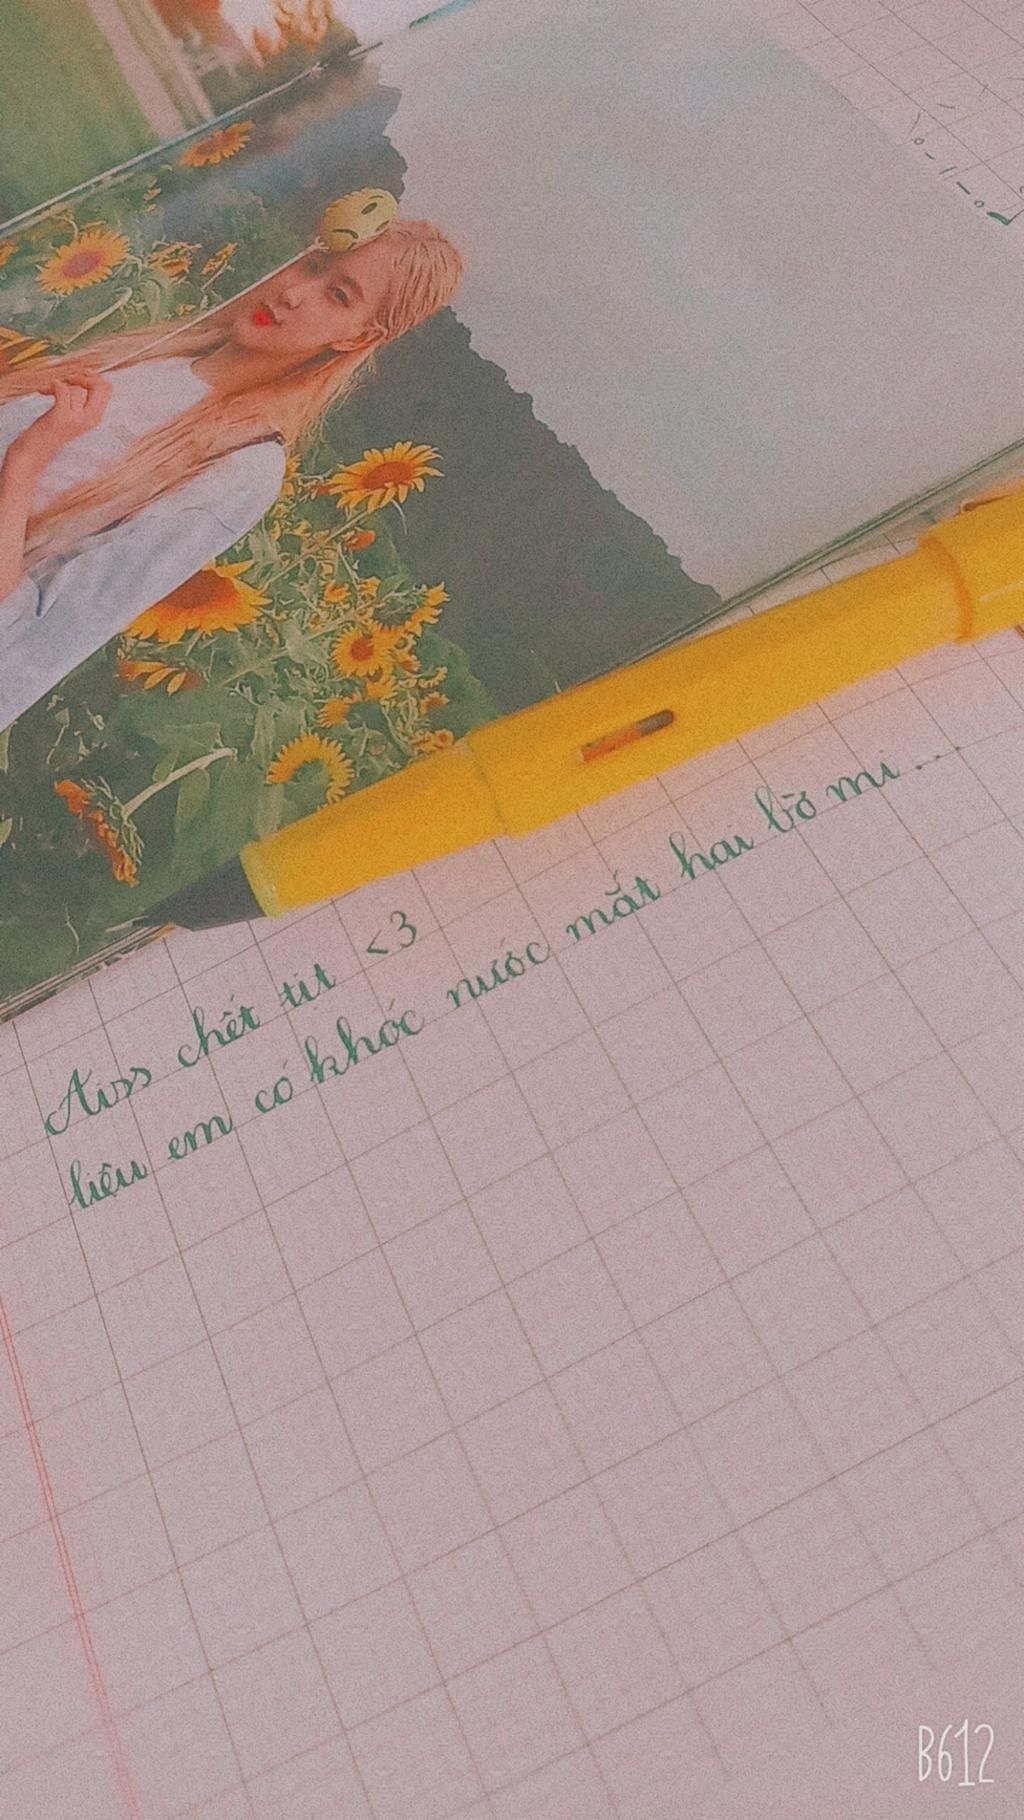 Aiss chết tiệt <3
liệu em có khóc nước mắt hai bờ mi...
B612